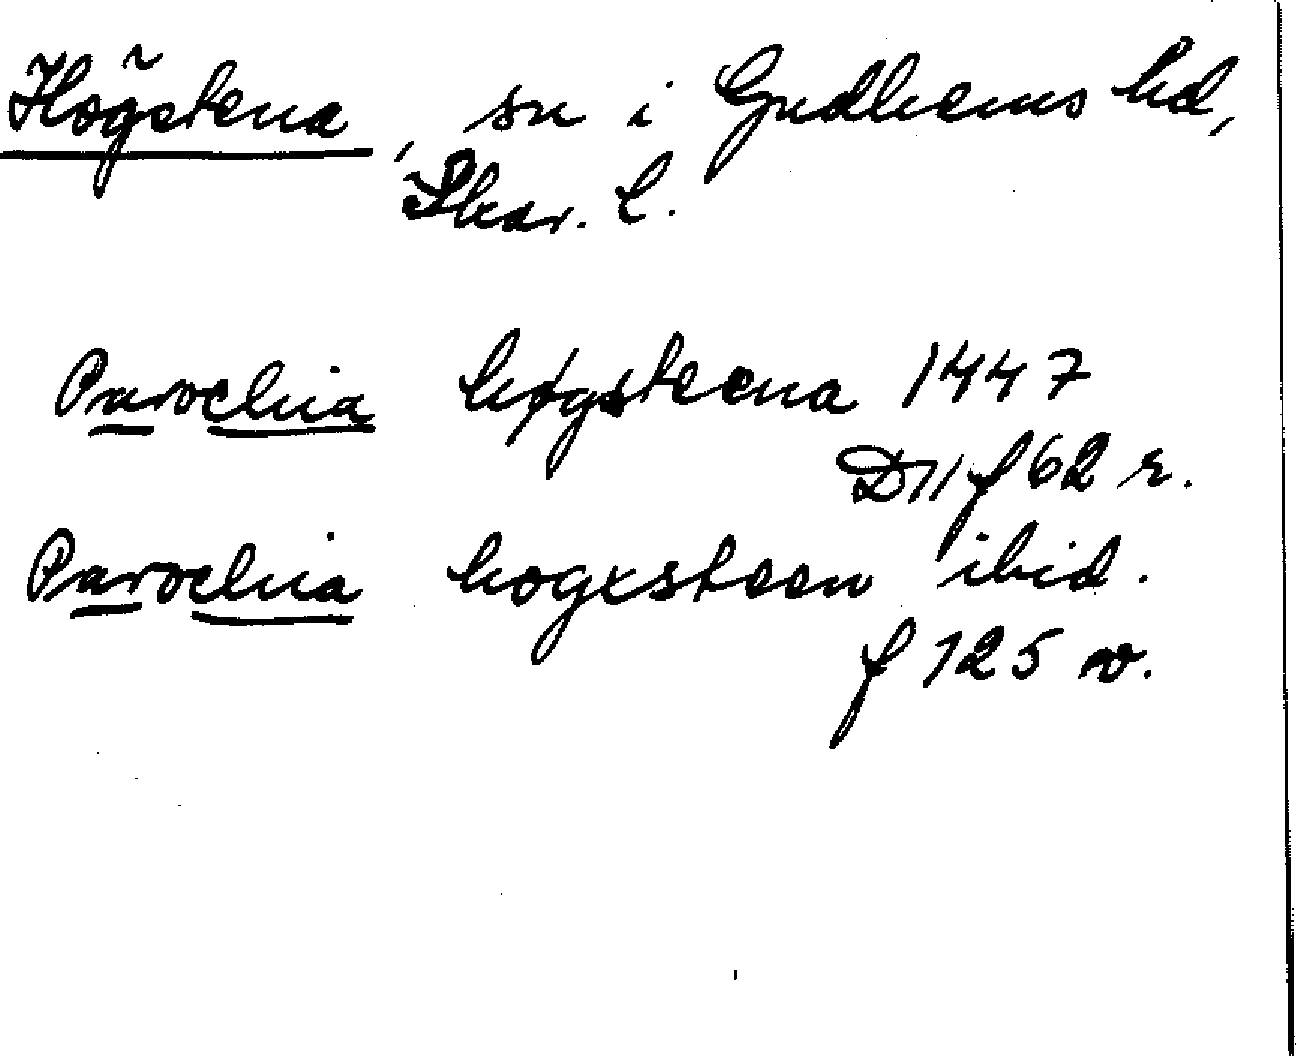 Högstena, sn i Gudhems hd,
Skar. l.
Parochia høgsteena 1447
D 11 f 62 r.
Parochia hogxsteen ibid.
f 125 v.